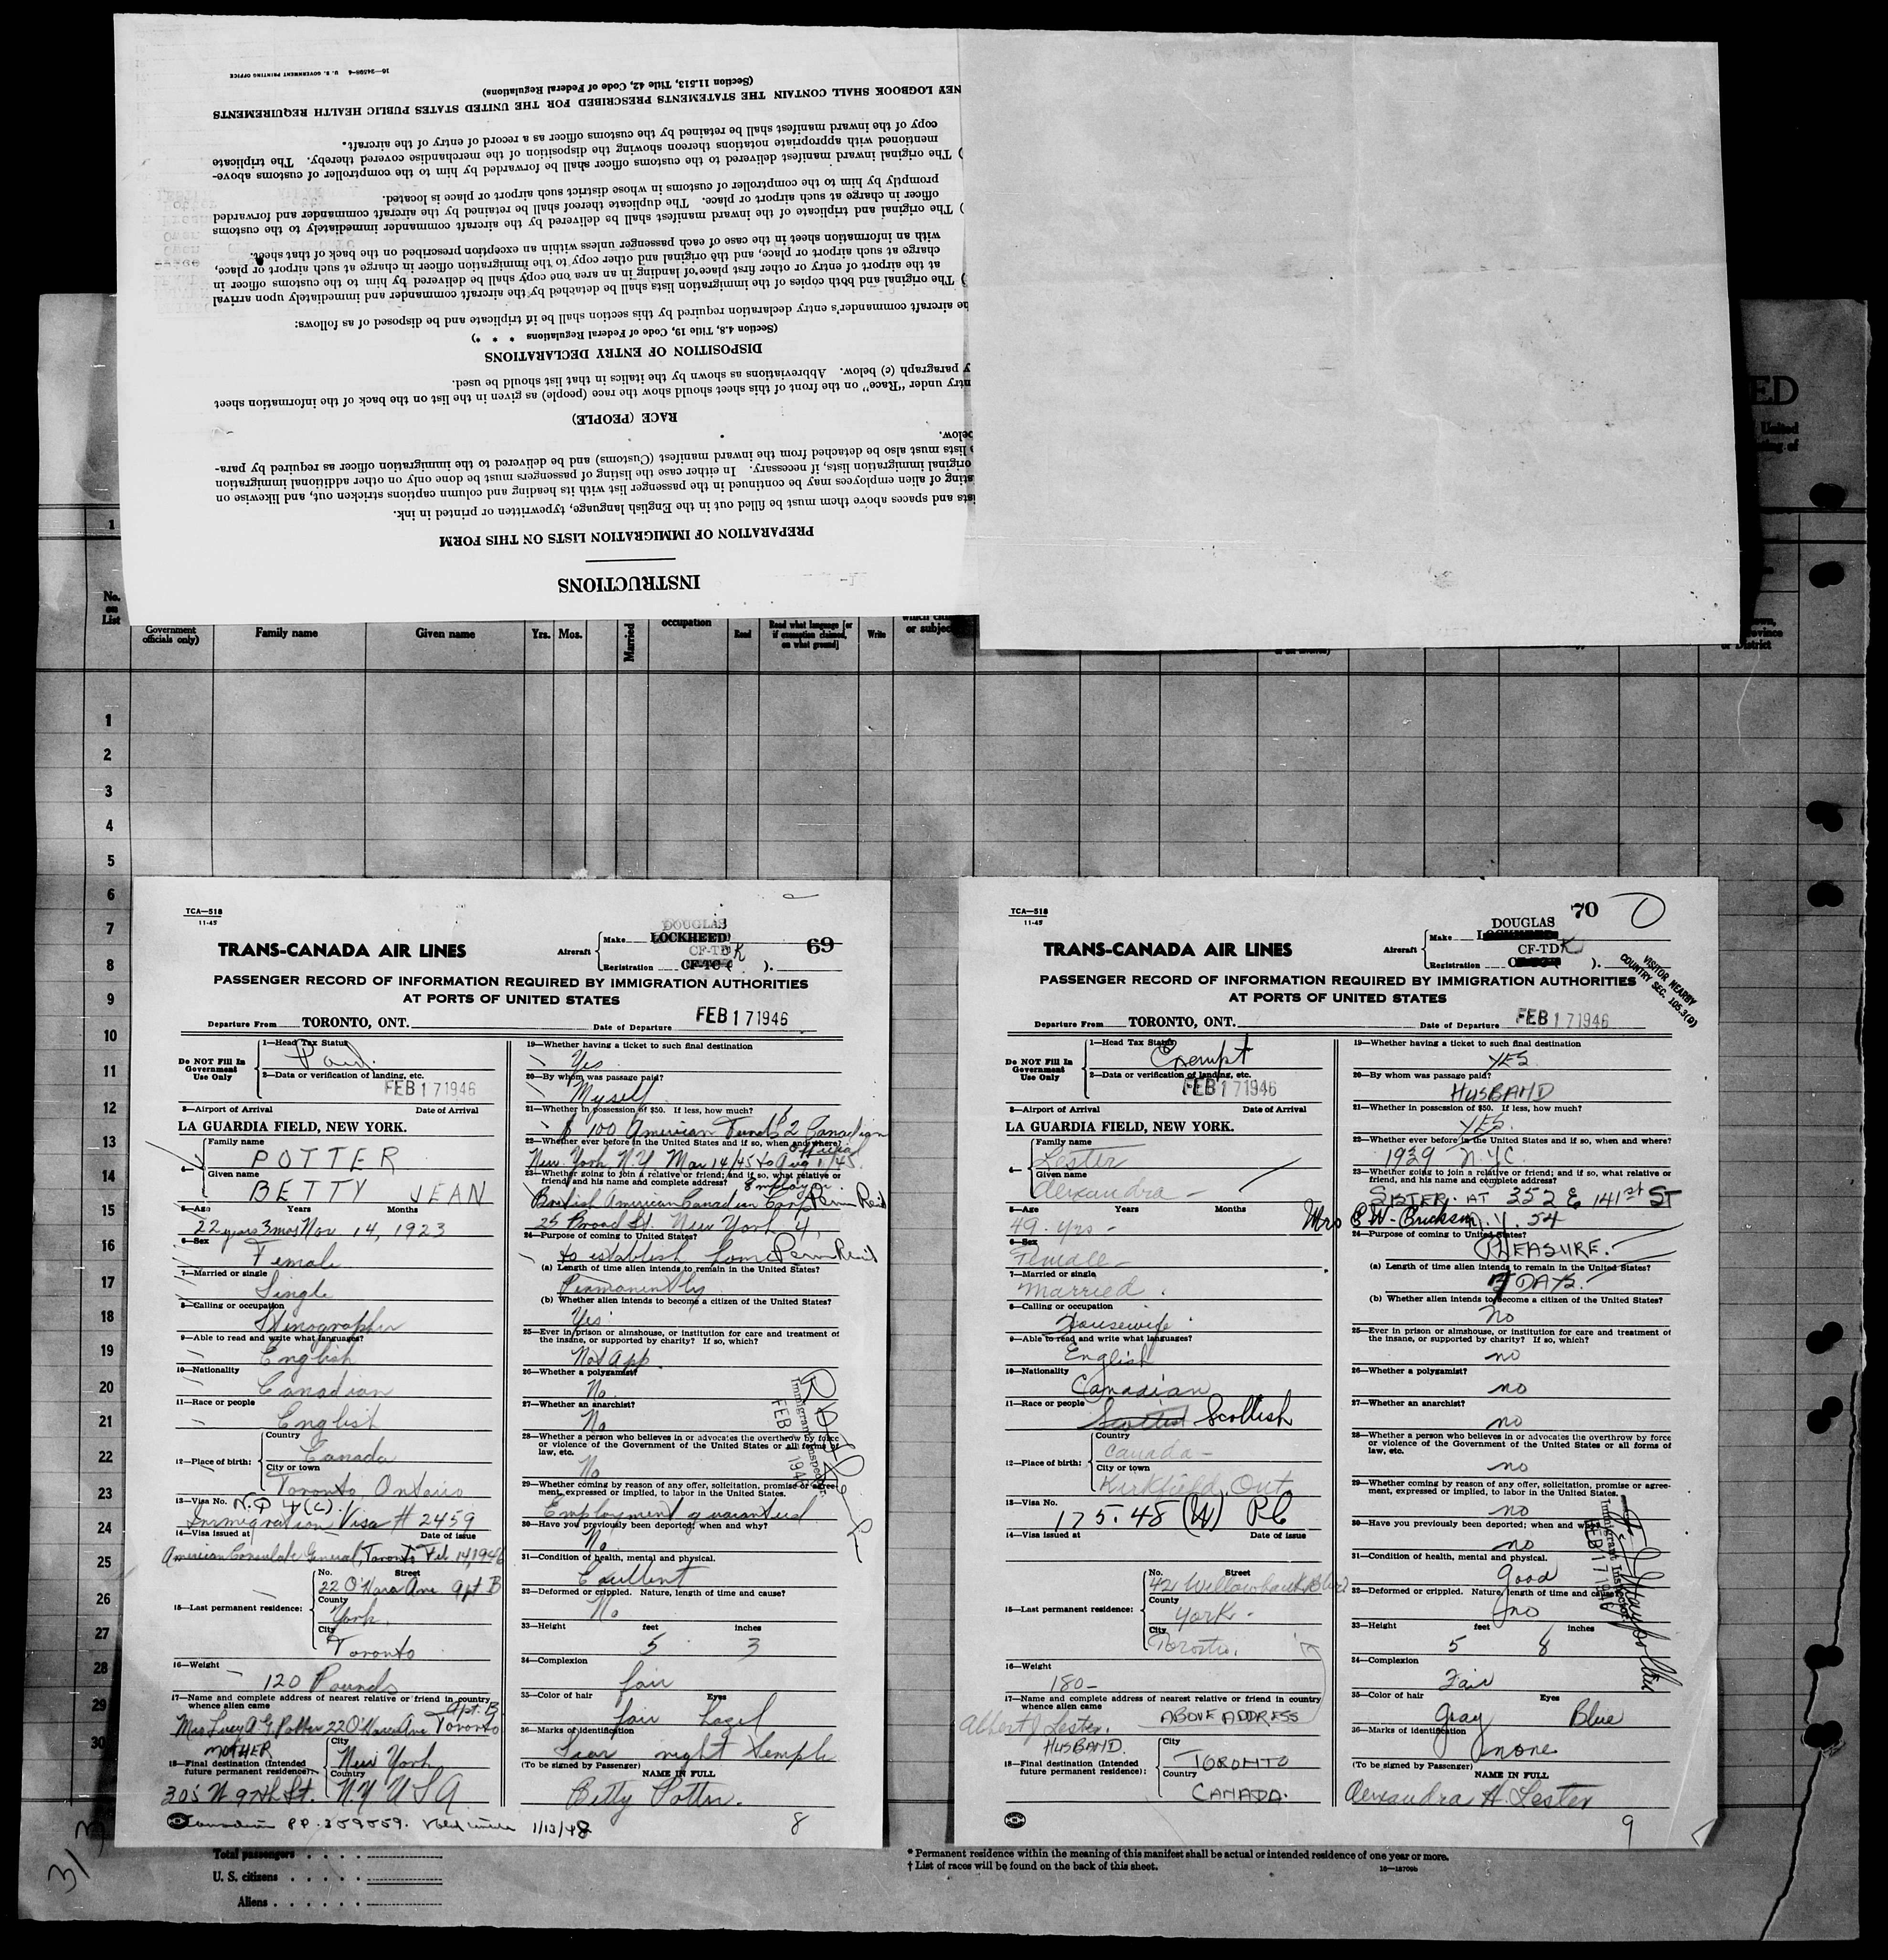 INSTRUCTIONS
PREPARATION OF IMMIGRATION LISTS ON THIS FORM
and spaces above them must be filled out in the English language, typewritten or printed in ink.
of alien employees may be continued in the passenger list with its heading and column captions stricken out, and likewise on
original immigration lists, if necessary. In either case the listing of passengers must be done only on other additional immigration
lists must also be detached from the inward manifest (Customs) and be delivered to the immigration officer as required by para-
below.
RACE (PEOPLE)
under "Race" on the front of this sheet should show the race (people) as given in the list on the back of the information sheet
paragraph (c) below. Abbreviations as shown by the italics in that list should be used.
DISPOSITION OF ENTRY DECLARATIONS
(Section 4.8, Title 19, Code of Federal Regulations * * *)
aircraft commander's entry declaration required by this section shall be in triplicate and be disposed of as follows:
) The original and both copies of the immigration lists shall be detached by the aircraft commander and immediately upon arrival
at the airport of entry or other first place of landing in an area one copy shall be delivered by him to the customs officer in
charge at such airport or place, and the original and other copy to the immigration officer in charge at such airport or place,
with an information sheet in the case of each passenger unless within an exception prescribed on the back of that sheet.
) The original and triplicate of the inward manifest shall be delivered by the aircraft commander immediately to the customs
officer in charge at such airport or place. The duplicate thereof shall be retained by the aircraft commander and forwarded
promptly by him to the comptroller of customs in whose district such airport or place is located.
) The original inward manifest delivered to the customs officer shall be forwarded by him to the comptroller of customs above-
mentioned with appropriate notations thereon showing the disposition of the merchandise covered thereby. The triplicate
copy of the inward manifest shall be retained by the customs officer as a record of entry of the aircraft.
LOGBOOK SHALL CONTAIN THE STATEMENTS PRESCRIBED FOR THE UNITED STATES PUBLIC HEALTH REQUIREMENTS
(Section 11.513, Title 42, Code of Federal Regulations)
16—24598-4 U. S. GOVERNMENT PRINTING OFFICE
ED
United
of
1
No. on List
Government officials only)
Family name
Given name
Yrs. Mos.
Married
occupation
Read
Read what language [or if exemption claimed, on what ground]
Write
or District
1
2
3
4
5
6
7
8
9
10
11
12
13
14
15
16
17
18
19
20
21
22
23
24
25
26
27
28
29
30
TCA—518
11-45
TRANS-CANADA AIR LINES
Aircraft
Make DOUGLAS LOCKHEED
Registration CF-TDK CF-TC( ).
69
PASSENGER RECORD OF INFORMATION REQUIRED BY IMMIGRATION AUTHORITIES
AT PORTS OF UNITED STATES
Departure From TORONTO, ONT. Date of Departure FEB 17 1946
Do NOT Fill In Government Use Only
1—Head Tax Status
Paid
2—Data or verification of landing, etc.
FEB 17 1946
3—Airport of Arrival Date of Arrival
LA GUARDIA FIELD, NEW YORK.
4—
Family name
POTTER
Given name
BETTY JEAN
5—Age Years Months
22 years 3 mos Nov 14, 1923
6—Sex
Female
7—Married or single
Single
8—Calling or occupation
Stenographer
9—Able to read and write what languages?
English
10—Nationality
Canadian
11—Race or people
English
12—Place of birth:
Country
Canada
City or town
Toronto Ontario
13—Visa No. N.P 4(c)
Immigration Visa # 2459
14—Visa issued at Date of issue
American Consulate General, Toronto Feb 14, 1946
15—Last permanent residence:
No. Street
22 O'Hara Ave. Apt. B
County
York
City
Toronto
16—Weight
120 Pounds
17—Name and complete address of nearest relative or friend in country whence alien came
Apt. B
Mrs Lucy A G. Potter 22 O'Hara Ave Toronto
MOTHER
18—Final destination (Intended future permanent residence):
City
New York
Country
305 W 97th St. N.Y. U S A
Canadian P.P. 359059. Valid until 1/13/48
19—Whether having a ticket to such final destination
Yes
20—By whom was passage paid?
Myself
21—Whether in possession of $50. If less, how much?
$ 100 American Funds 2 Canadian
22—Whether ever before in the United States and if so, when and where?
New York N.Y. Mar 14/45 to Aug 1/45
23—Whether going to join a relative or friend; and if so, what relative or friend, and his name and complete address?
Employer
British American Canadian Corp Perm Resid
25 Broad St. New York 4,
24—Purpose of coming to United States?
to establish home Perm Resid
(a) Length of time alien intends to remain in the United States?
Permanently
(b) Whether alien intends to become a citizen of the United States?
Yes
25—Ever in prison or almshouse, or institution for care and treatment of the insane, or supported by charity? If so, which?
Not App
26—Whether a polygamist?
No
27—Whether an anarchist?
No
28—Whether a person who believes in or advocates the overthrow by force or violence of the Government of the United States or all forms of law, etc.
No
29—Whether coming by reason of any offer, solicitation, promise or agreement, expressed or implied, to labor in the United States.
Employment guaranteed
30—Have you previously been deported; when and why?
No
31—Condition of health, mental and physical.
Excellent
32—Deformed or crippled. Nature, length of time and cause?
No
33—Height feet inches
5 3
34—Complexion
fair
35—Color of hair Eyes
fair hazel
36—Marks of identification
Scar right temple
(To be signed by Passenger) NAME IN FULL
Betty Potter.
8
Immigrant Inspector
FEB 17 1946
TCA—518
11-45
TRANS-CANADA AIR LINES
Aircraft
Make DOUGLAS
Registration CF-TDK ).
70
VISITOR NEARBY
COUNTRY SEC. 105.3(D)
PASSENGER RECORD OF INFORMATION REQUIRED BY IMMIGRATION AUTHORITIES
AT PORTS OF UNITED STATES
Departure From TORONTO, ONT. Date of Departure FEB 17 1946
Do NOT Fill In Government Use Only
1—Head Tax Status
Exempt
2—Data or verification of landing, etc.
FEB 17 1946
3—Airport of Arrival Date of Arrival
LA GUARDIA FIELD, NEW YORK.
4—
Family name
Lester
Given name
Alexandra -
5—Age Years Months
49 - yrs -
6—Sex
Female -
7—Married or single
Married.
8—Calling or occupation
Housewife
9—Able to read and write what languages?
English
10—Nationality
Canadian
11—Race or people
Scottish Scottish
12—Place of birth:
Country
Canada -
City or town
Kirkfield, Ont
13—Visa No.
175.48 (W) PC
14—Visa issued at Date of issue
15—Last permanent residence:
No. Street
42 Willowbank Blvd
County
York -
City
Toronto.
16—Weight
180 -
17—Name and complete address of nearest relative or friend in country whence alien came
Albert J Lester. ABOVE ADDRESS
HUSBAND.
18—Final destination (Intended future permanent residence):
City
TORONTO
Country
CANADA.
19—Whether having a ticket to such final destination
YES
20—By whom was passage paid?
HUSBAND
21—Whether in possession of $50. If less, how much?
YES.
22—Whether ever before in the United States and if so, when and where?
1939 N.Y.C.
23—Whether going to join a relative or friend; and if so, what relative or friend, and his name and complete address?
SISTER. AT 352 E 141st ST
Mrs E W. Erickson N.Y. 54
24—Purpose of coming to United States?
PLEASURE.
(a) Length of time alien intends to remain in the United States?
DAYS.
(b) Whether alien intends to become a citizen of the United States?
No
25—Ever in prison or almshouse, or institution for care and treatment of the insane, or supported by charity? If so, which?
no
26—Whether a polygamist?
no
27—Whether an anarchist?
no
28—Whether a person who believes in or advocates the overthrow by force or violence of the Government of the United States or all forms of law, etc.
no
29—Whether coming by reason of any offer, solicitation, promise or agreement, expressed or implied, to labor in the United States.
no
30—Have you previously been deported; when and why?
no
31—Condition of health, mental and physical.
good
32—Deformed or crippled. Nature, length of time and cause?
no
33—Height feet inches
5 8
34—Complexion
Fair
35—Color of hair Eyes
Gray Blue
36—Marks of identification
none
(To be signed by Passenger) NAME IN FULL
Alexandra H. Lester
9
Immigrant Inspector
FEB 17 1946
Total passengers
U. S. citizens
Aliens
* Permanent residence within the meaning of this manifest shall be actual or intended residence of one year or more.
† List of races will be found on the back of this sheet.